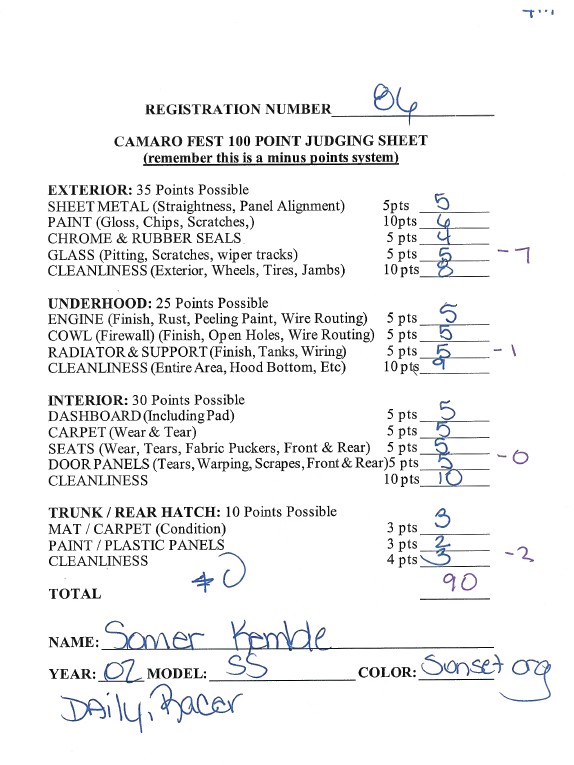 REGISTRATION NUMBER 84
CAMARO FEST 100 POINT JUDGING SHEET
(remember this is a minus points system)
EXTERIOR: 35 Points Possible
SHEET METAL (Straightness, Panel Alignment) 5pts 5
PAINT (Gloss, Chips, Scratches,) 10pts 6
CHROME & RUBBER SEALS 5 pts 4
GLASS (Pitting, Scratches, wiper tracks) 5 pts 5 -7
CLEANLINESS (Exterior, Wheels, Tires, Jambs) 10 pts 8
UNDERHOOD: 25 Points Possible
ENGINE (Finish, Rust, Peeling Paint, Wire Routing) 5 pts 5
COWL (Firewall) (Finish, Open Holes, Wire Routing) 5 pts 5
RADIATOR & SUPPORT (Finish, Tanks, Wiring) 5 pts 5 -1
CLEANLINESS (Entire Area, Hood Bottom, Etc) 10 pts 9
INTERIOR: 30 Points Possible
DASHBOARD (Including Pad) 5 pts 5
CARPET (Wear & Tear) 5 pts 5
SEATS (Wear, Tears, Fabric Puckers, Front & Rear) 5 pts 5
DOOR PANELS (Tears, Warping, Scrapes, Front & Rear) 5 pts 5 -0
CLEANLINESS 10 pts 10
TRUNK / REAR HATCH: 10 Points Possible
MAT / CARPET (Condition) 3 pts 3
PAINT / PLASTIC PANELS 3 pts 2
CLEANLINESS 4 pts 3 -2
TOTAL 90
NAME: Somer
YEAR: 02 MODEL: SS COLOR: Sunset org
Daily, Racer